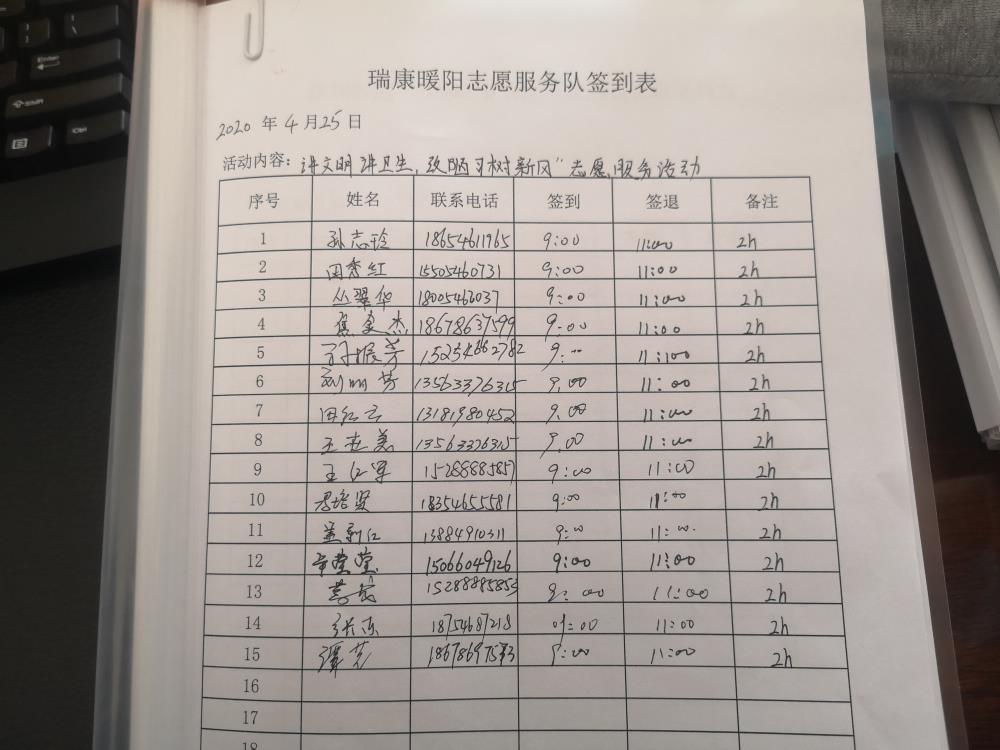 瑞康暖阳志愿服务队签到表
2020 年 4 月 25 日
活动内容: 讲文明讲卫生,改陋习树新风"志愿服务活动
序号 姓名 联系电话 签到 签退 备注
1 孙志玲 18654611965 9:00 11:00 2h
2 田秀红 15505460731 9:00 11:00 2h
3 丛翠华 1800546037 9:00 11:00 2h
4 杰 18678637599 9:00 11:00 2h
5 振芳 15254662782 9:00 11:00 2h
6 刘丽芳 13563376315 9:00 11:00 2h
7 田红云 13181980452 9:00 11:00 2h
8 王世美 13563376315 9:00 11:00 2h
9 王红军 15288885857 9:00 11:00 2h
10 培贤 18354655581 9:00 11:00 2h
11 盖新红 13884910311 9:00 11:00 2h
12 莹莹 15066049126 9:00 11:00 2h
13 15288885855 9:00 11:00 2h
14 张 18754687218 9:00 11:00 2h
15 谭芳 9:00 11:00 2h
16
17
18